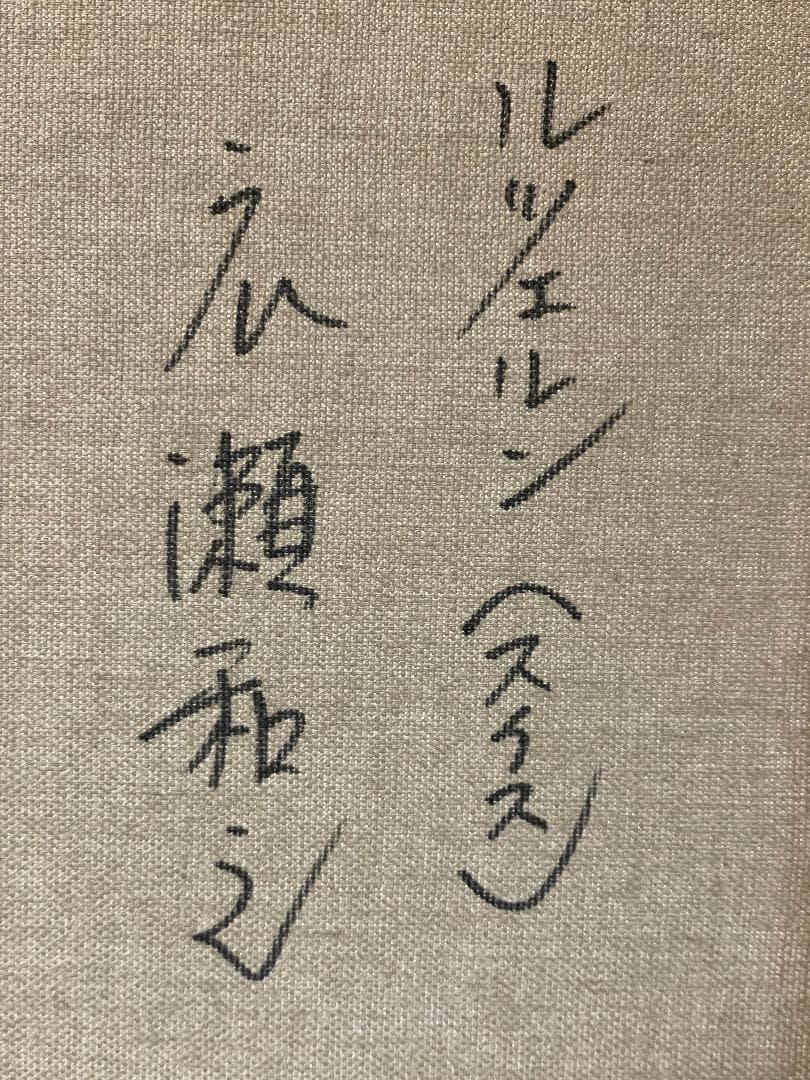 ルツェルン(スイス)
広瀬和之